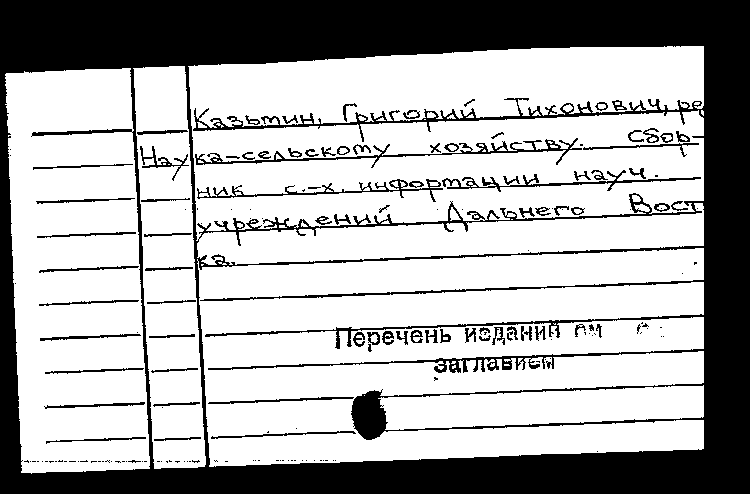 Казьмин, Григорий Тихонович, ре
Наука-сельскому хозяйству. Сбор-
ник с.-х. информации науч.
учреждений Дальнего Вост
ка.
Перечень изданий см
заглавием